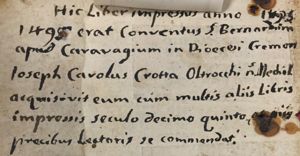 Hic Liber impressus anno 1495
1495 erat Conventus S. Bernardini
apud Caravagium in Dioecesi Cremon
Ioseph Carolus Crotta Oltrocchi n. Mediol
acquisivit eum cum multis aliis Libris
impressis seculo decimo quinto, et piis
precibus Lectoris se commendat.